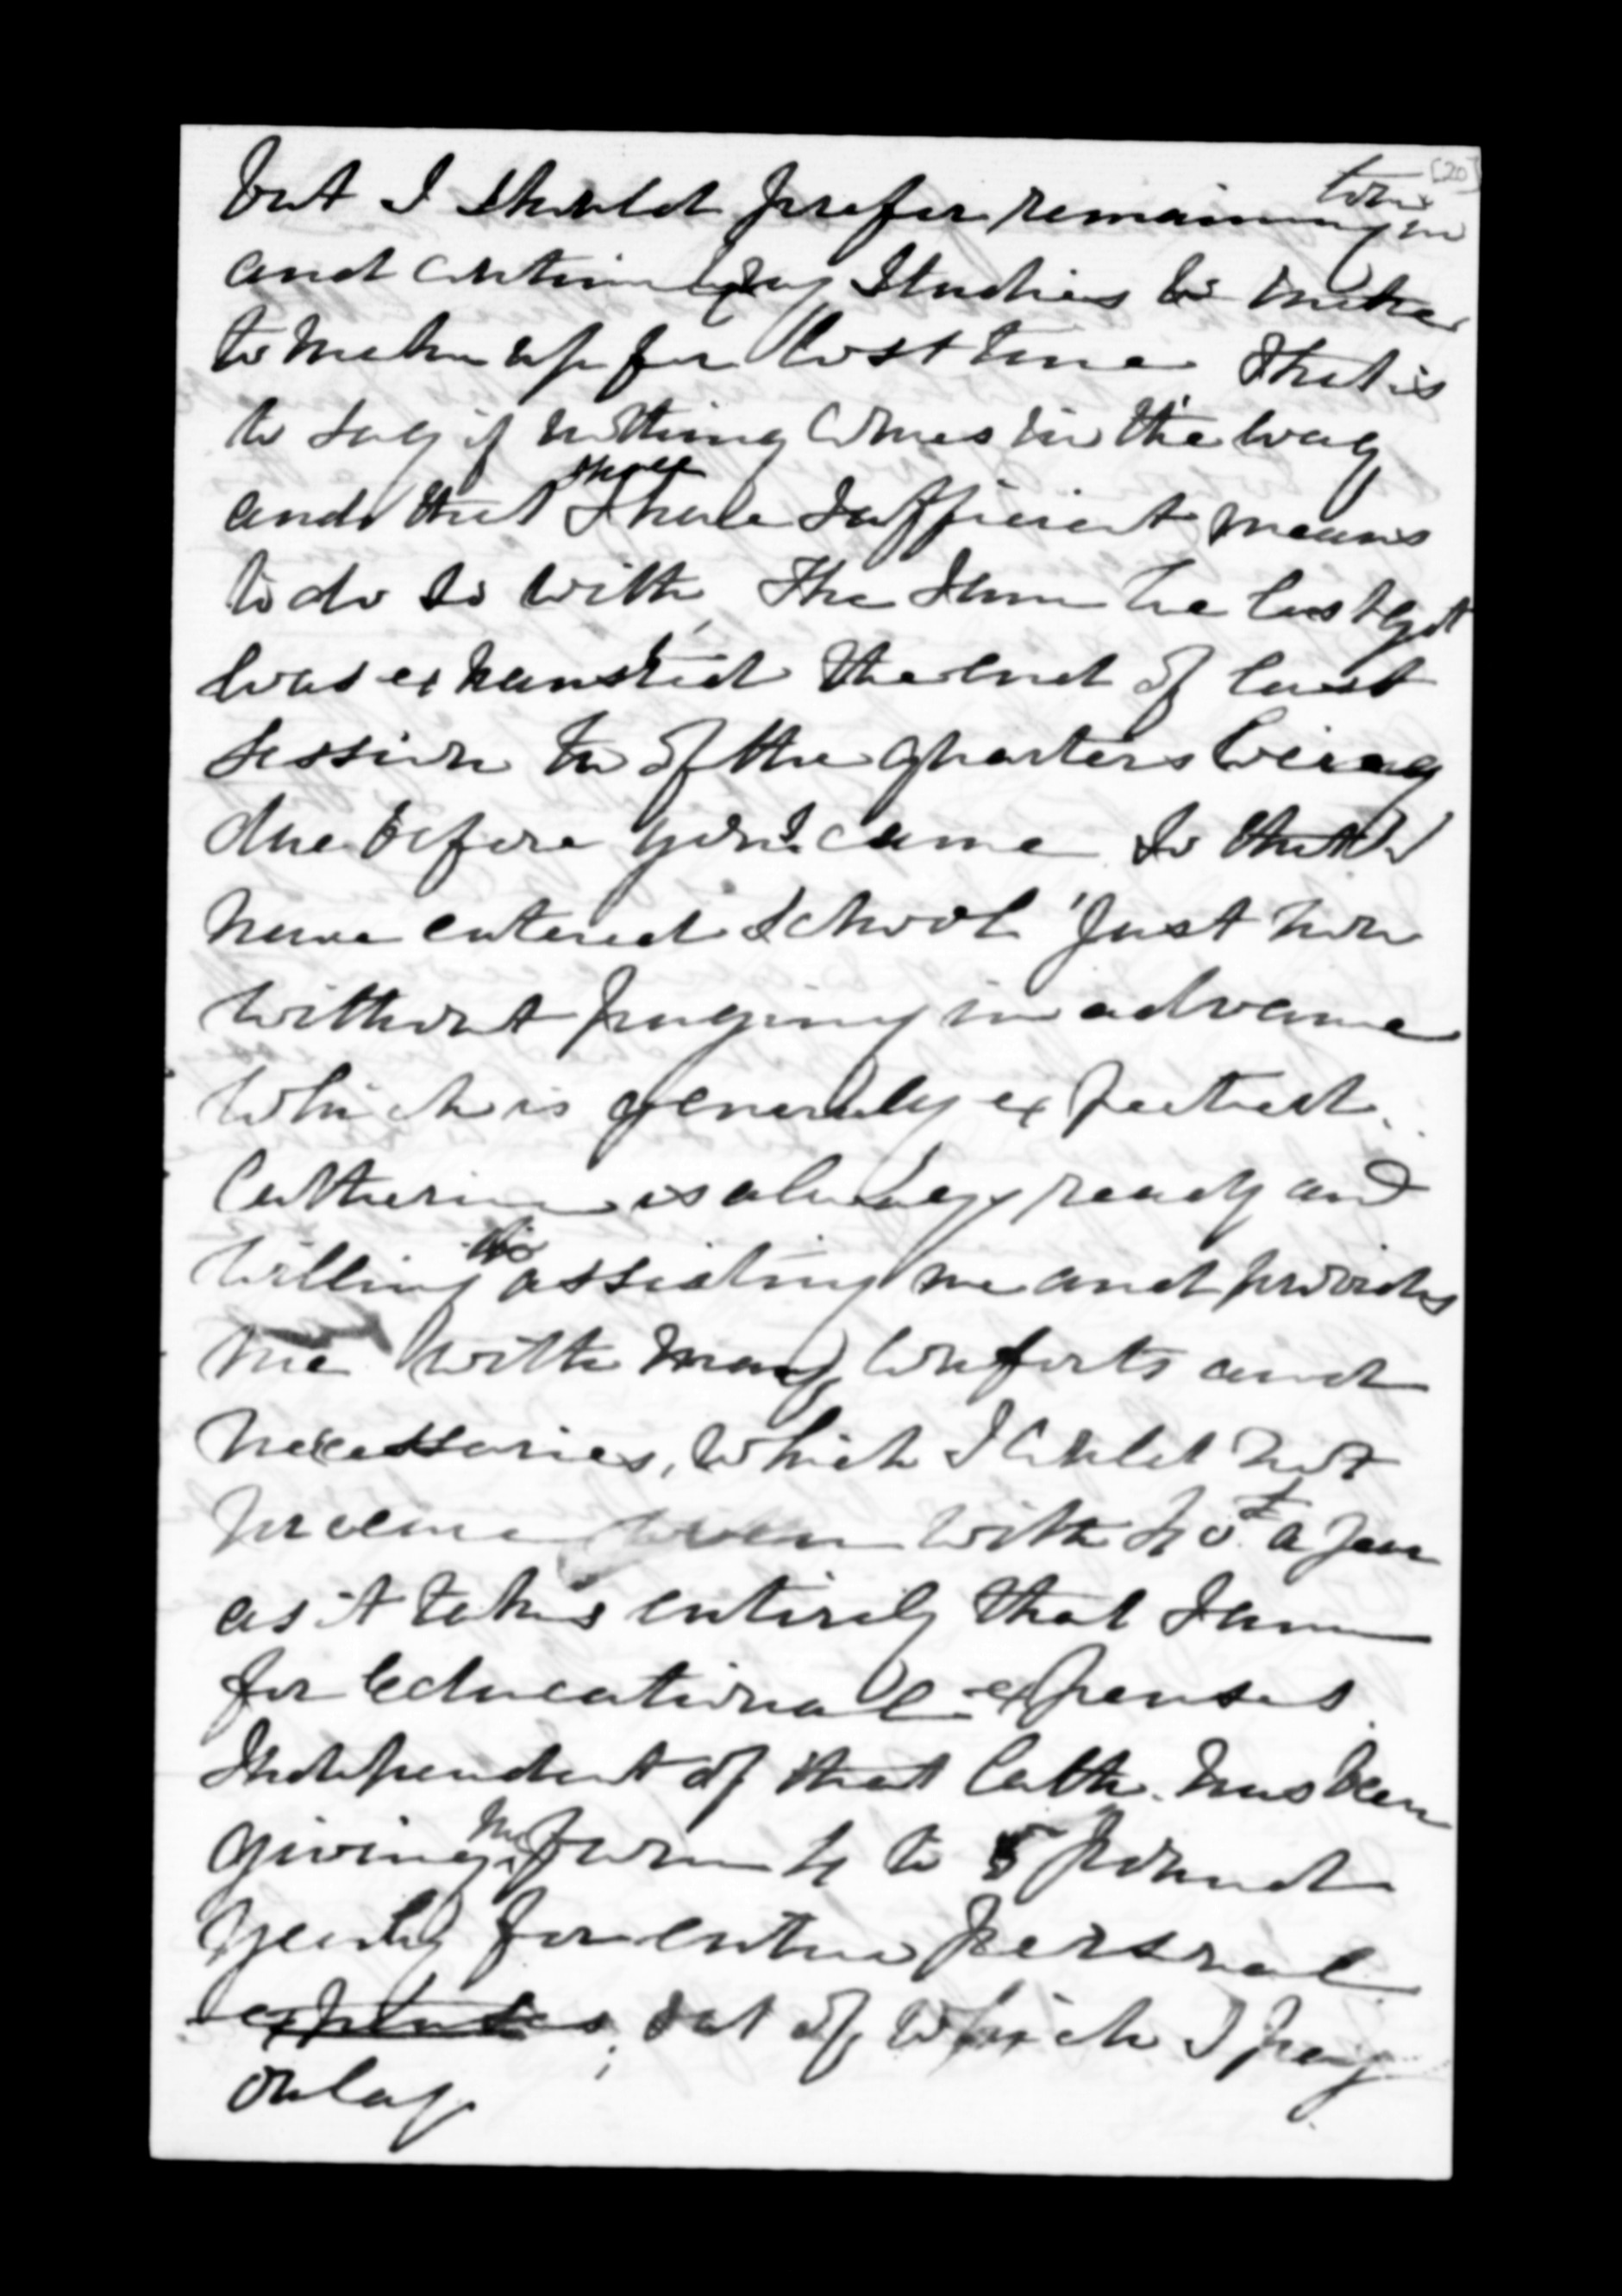 [20]
but I should prefer remaining in town
and continue my Studies to make
to make up for lost time that is
to say if nothing comes in the way
and that I shall have sufficient means
to do so with, The Sum he last got
was exhausted the end of last
session two of the quarters being
due before you came So that I
never entered School Just now
without paying in advance
which is generally expected.
Catherine is always ready and
willing assisting me and provides
me with many comforts and
necessaries, which I could not
procure even with 40£ a year
as it takes entirely that Sum
for Educational expenses
Independent of that Cath. has been
giving me from 4 to 5 pound
yearly for entire personal
expenses; out of which I pay
only